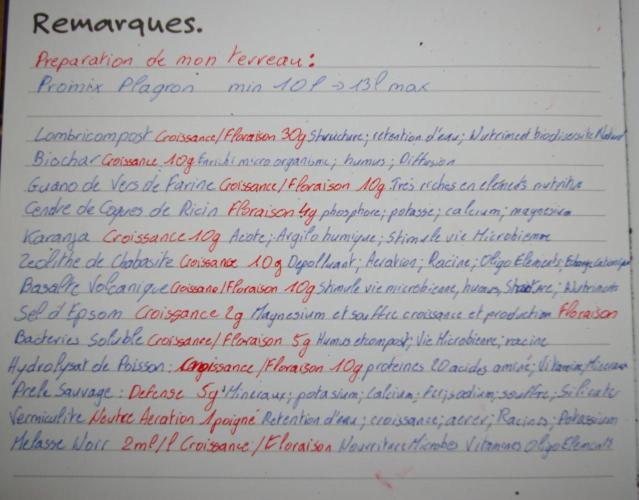 Remarques.
Preparation de mon terreau:
Promix Plagron min 10l → 13l max
Lombricompost Croissance/Floraison 30g Structure; retention d'eau; Nutriment biodiversite Naturel
Biochar Croissance 10g Enrichi micro organisme; humus; Diffusion
Guano de Vers de Farine Croissance/Floraison 10g Tres riches en elements nutritif
Cendre de Coques de Ricin Floraison 4g phosphore; potasse; calcium; magnesium
Karanja Croissance 10g Azote; Argilo humique; Stimule vie Microbienne
Zeolithe de Chabasite Croissance 10g Depolluant; Aeration; Racine; Oligo Elements; Echange
Basalte Volcanique Croissance/Floraison 10g Stimule vie microbienne, humus, Structure; Nutriments
Sel d'Epsom Croissance 2g Magnesium et souffre croissance et production Floraison
Bacteries Soluble Croissance/Floraison 5g Humus et compost; Vie Microbienne; racine
Hydrolysat de Poisson: Croissance/Floraison 10g proteines 20 acides aminé; Vitamin; Mineraux
Prele Sauvage: Defense 5g Mineraux; potasium; Calcium; Fer; sodium; souffre; Silicate
Vermiculite Neutre Aeration 1 poigné Retention d'eau; croissance; aerer; Racines; Potassium
Melasse Noir 2ml/l Croissance/Floraison Nourriture Microbes Vitamines Oligo Elements